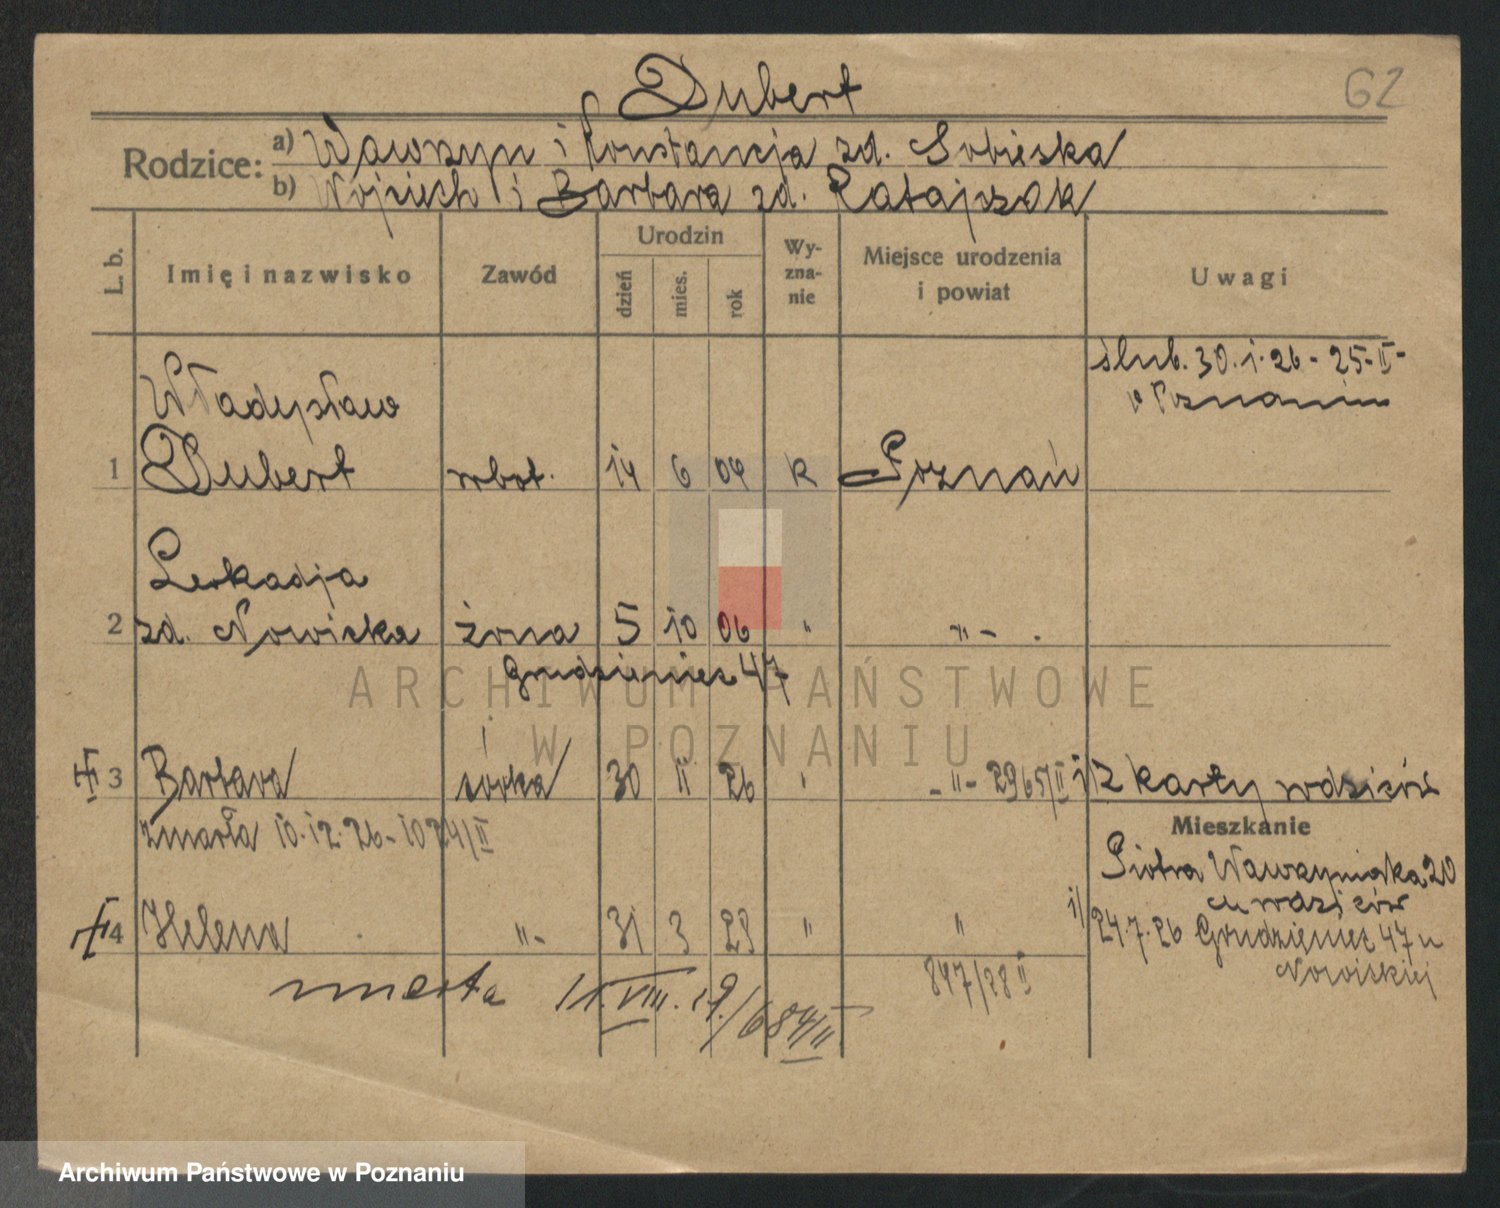 Dubert
62
Rodzice: a) Wawrzyn i Konstancja zd. Sobieska
b) Wojciech i Barbara zd. Ratajczak
L. b. Imię i nazwisko Zawód Urodzin dzień mies. rok Wy-zna-nie Miejsce urodzenia i powiat Uwagi
ślub. 30.1.26 - 25-II-
w Poznaniu
Władysław
1 Dubert robot. 14 6 04 k Poznań
Leokadja
2 zd. Nowicka żona 5 10 06 " "- .
Grudzieniec 47
3 Barbara córka 30 11 26 " -"- 2965/II 1) z karty rodziców
zmarła 10.12.26 - 1024/II
Mieszkanie
Piotra Wawrzyniaka 20
u rodziców
4 Helena "- 31 3 28 " " 1) 24.7.26 Grudzieniec 47 u
Nowickiej
847/28 II
zmarła 11.VIII.29/684/II
ARCHIWUM PAŃSTWOWE
W POZNANIU
Archiwum Państwowe w Poznaniu